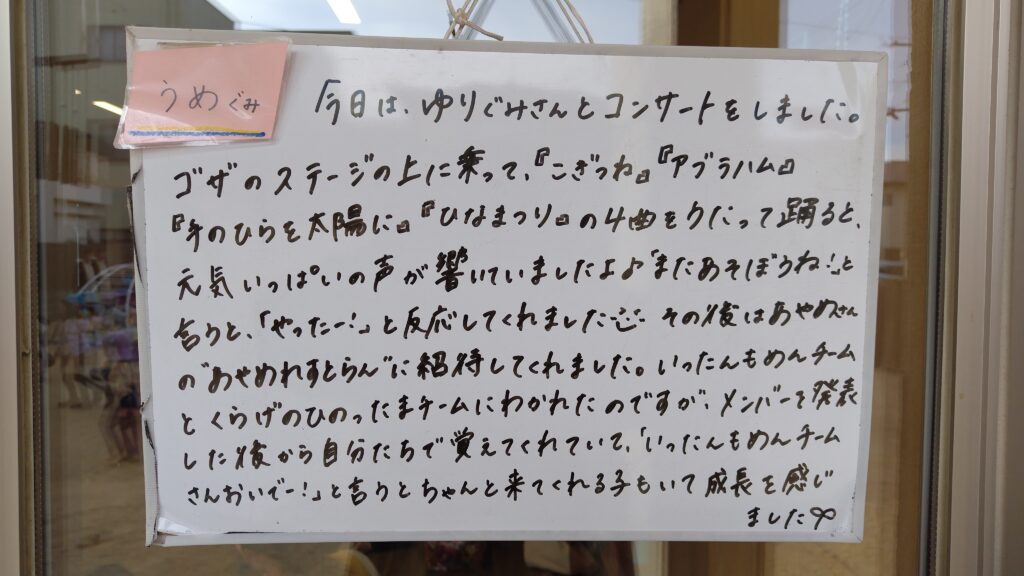 うめぐみ
今日は、ゆりぐみさんとコンサートをしました。
ゴザのステージの上に乗って、『こぎつね』『アブラハム』
『手のひらを太陽に』『ひなまつり』の4曲をうたって踊ると、
元気いっぱいの声が響いていましたよ♪「またあそぼうね!」と
言うと、「やったー!」と反応してくれました その後はあやめさん
の"あやめれすとらん"に招待してくれました。いったんもめんチーム
とくらげのひのったまチームにわかれたのですが、メンバーを発表
した後から自分たちで覚えてくれていて、「いったんもめんチーム
さんおいでー!」と言うとちゃんと来てくれる子もいて成長を感じ
ました